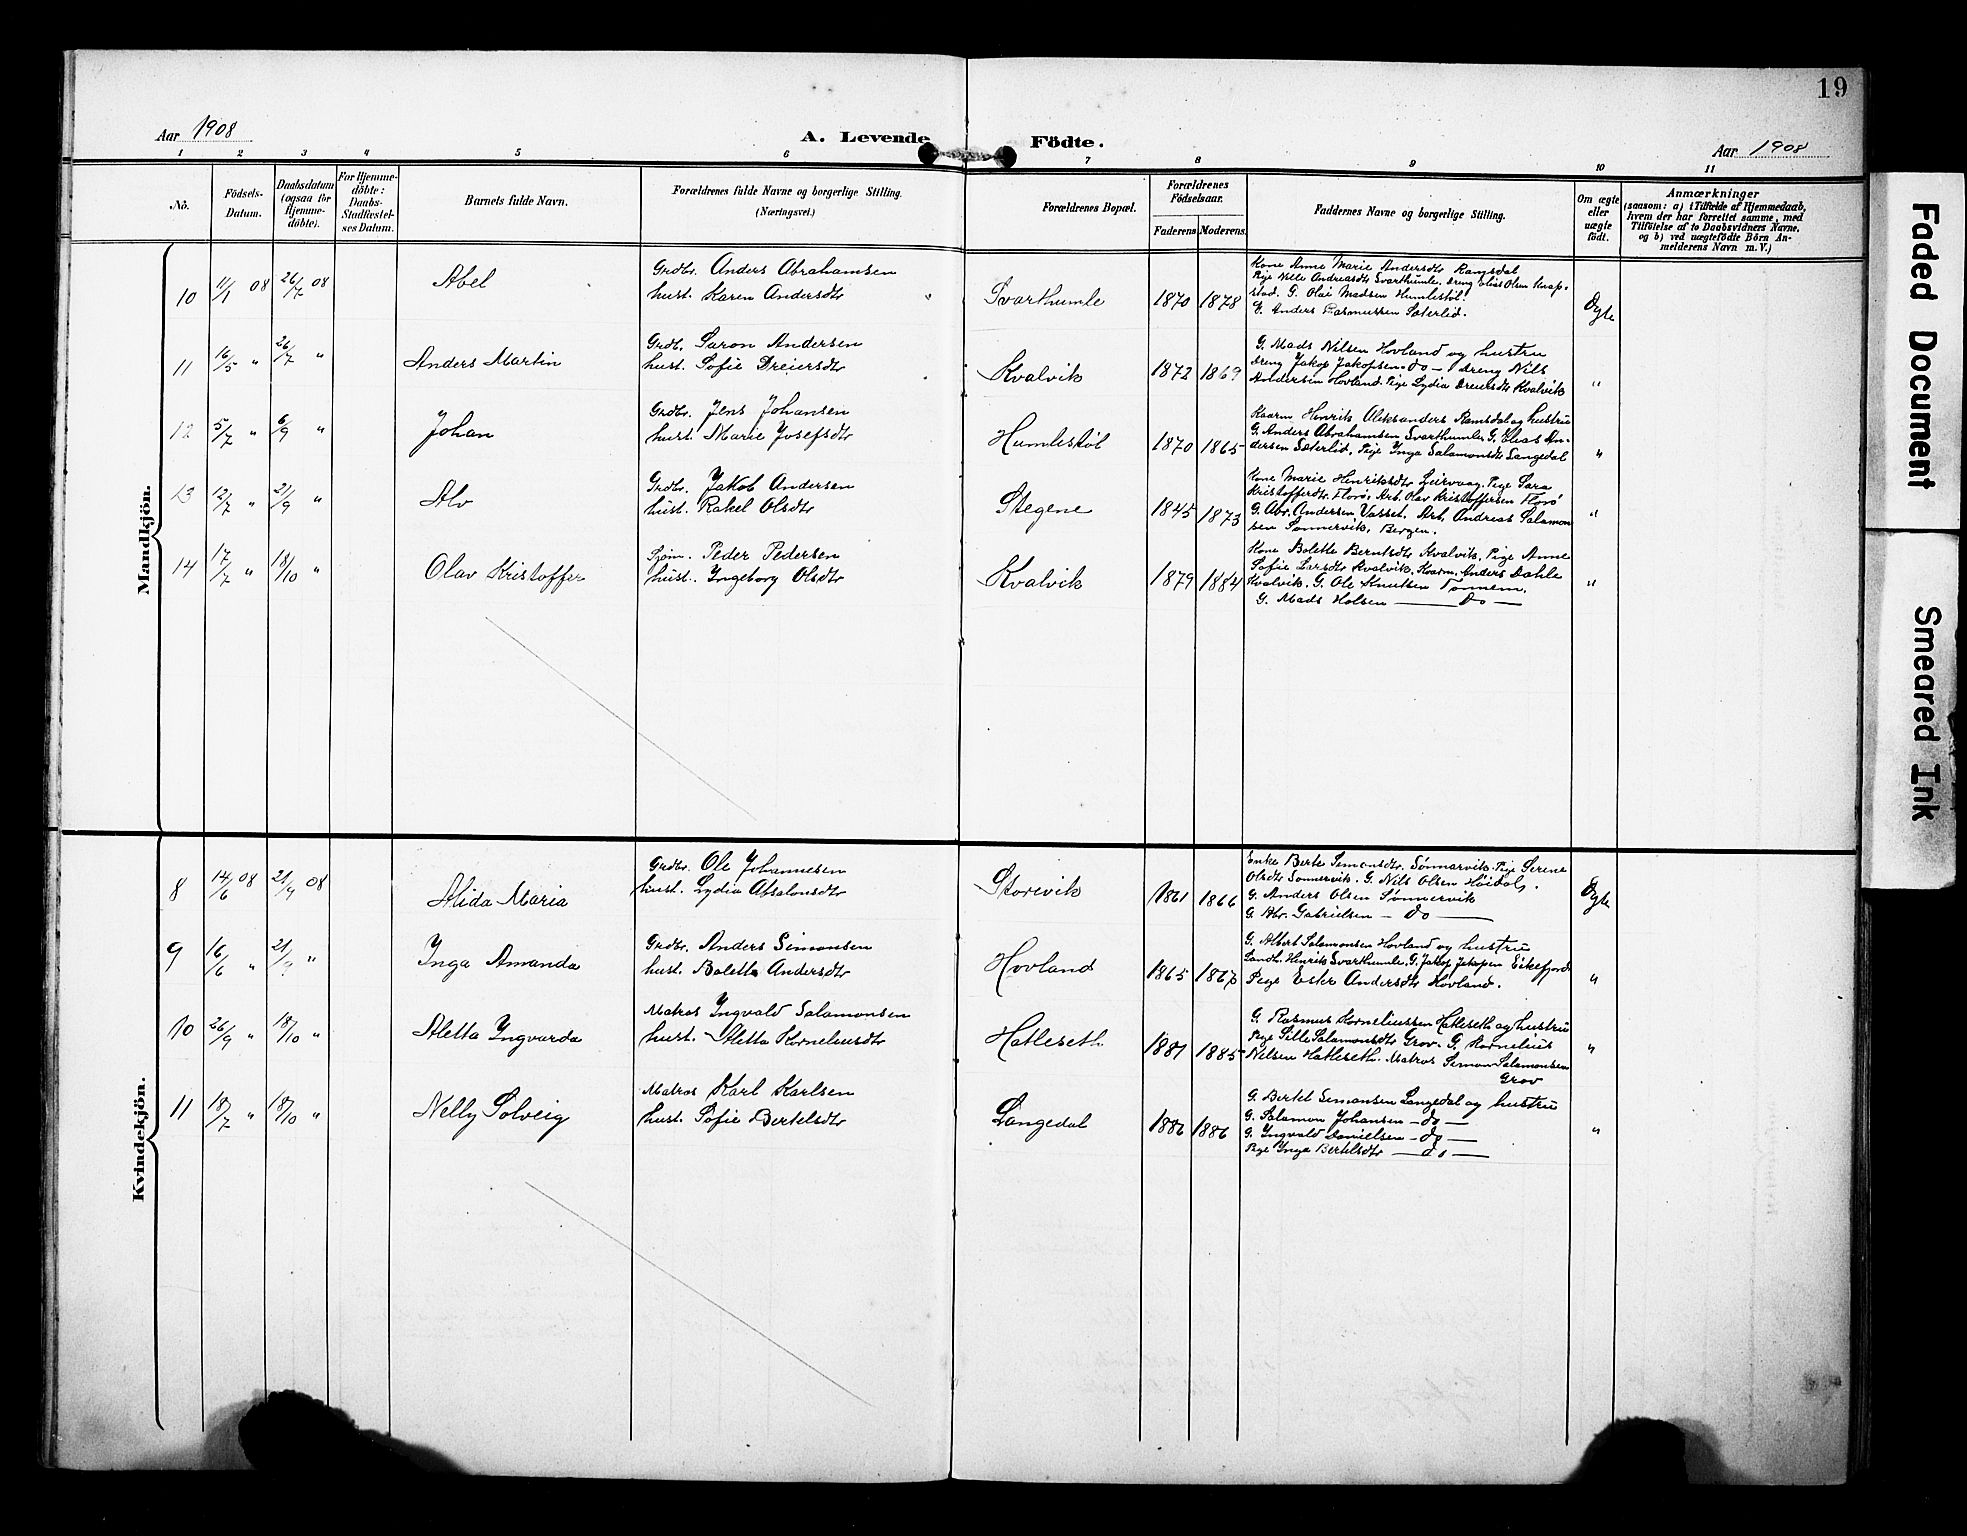 19
Aar 1908
A. Levende Födte.
Aar 1908
1 2 3 4 5 6 7 8 9 10 11
No.
Födsels-Datum.
Daabsdatum (ogsaa for Hjemme-döbte).
For Hjemme-döbte: Daabs-Stadfæstel-ses Datum.
Barnets fulde Navn.
Forældrenes fulde Navne og borgerlige Stilling. (Næringsvei.)
Forældrenes Bopæl.
Forældrenes Födselsaar.
Faderens Moderens.
Faddernes Navne og borgerlige Stilling.
Om ægte eller uægte födt.
Anmærkninger
(saasom: a) i Tilfælde af Hjemmedaab,
hvem der har forrettet samme, med
Tilföielse af to Daabsvidners Navne,
og b) ved uægtefödte Börn An-
melderens Navn m. V.)
Mandkjön.
10 11/1 08 26/7 08 Abel
Grdbr. Anders Abrahamsen
hust. Karen Andersdtr
Svarthumle 1870 1878
Kone Anne Marie Andersdtr Ramsdal
Pige Nille Andreasdtr Svarthumle. Dreng Elias Olsen Knap-
stad. G. Olai Madsen Humlestöl.
G. Anders Rasmussen Sæterlid.
Ægte
11 16/5 " 26/7 " Anders Martin
Grdbr. Saron Andersen
hust. Sofie Dreiersdtr
Kvalvik 1872 1869
G. Mads Nilsen Hovland og hustru
Dreng Jakop Jakopsen do — Dreng Nils
Andersen Hovland. Pige Lydia Dreiersdtr Kvalvik
"
12 5/7 " 6/9 " Johan
Grdbr. Jens Johansen
hust. Marie Josefsdtr
Humlestöl 1870 1865
Kaarm Henrik Aleksanders Ramsdal og hustru
G. Anders Abrahamsen Svarthumle. G. Elias An-
dersen Sæterlid. Pige Inga Salamonsdtr Langedal
"
13 12/7 " 21/9 " Alv
Grdbr. Jakob Andersen
hust. Rakel Olsdtr
Stegene 1845 1873
Kone Marie Henriksdtr Leirvaag. Pige Sara
Kristofferdtr. Florö. Arb. Olav Kristoffersen Florö
G. Abr. Andersen Vasset. Arb. Andreas Salamon
sen Sønnervik, Bergen.
"
14 17/7 " 18/10 " Olav Kristoffer
Sjöm. Peder Pedersen
hust. Ingeborg Olsdtr
Kvalvik 1879 1884
Kone Bolette Berntsdtr Kvalvik. Pige Anne
Sofie Larsdtr Kvalvik. Kaarm. Anders Dahle
Kvalvik. G. Ole Knutsen Tonnem.
G. Mads Holsen — Do —
"
Kvindekjön.
8 14/6 08 21/9 08 Alida Maria
Grdbr. Ole Johannesen
hust. Lydia Absalonsdtr
Storevik 1861 1866
Enke Berte Simonsdtr. Sönnarvik. Pige Serene
Olsdtr Sonnervik. G. Nils Olsen Höidal.
G. Anders Olsen Sønnervik
G. Abr. Gabrielsen — do —
Ægte
9 16/6 " 21/9 " Inga Amanda
Grdbr. Anders Simonsen
hust. Bolette Andersdtr
Hovland 1865
G. Albert Salamonsen Hovland og hustru
Landh. Henrik Svarthumle. G. Jakop Jakopsen Eikefjord
Pige Ester Andersdtr Hovland.
"
10 26/9 " 18/10 " Aletta Ingvarda
Matros Ingvald Salamonsen
hust. Aletta Korneliusdtr
Hatleseth 1881 1885
G. Rasmus Korneliussen Hatleseth og hustru
Pige Sille Salamonsdtr Grov. G. Kornelius
Nilsen Hatleseth. Matros Simon Salamonsen
Grov
"
11 18/7 " 18/10 " Nelly Solveig
Matros Karl Karlsen
hust. Sofie Bertelsdtr
Langedal 1886 1886
G. Bertel Simonsen Langedal og hustru
G. Salamon Johansen — do —
G. Ingvald Danielsen — do —
Pige Inga Bertelsdtr — do —
"
Faded Document
Smeared Ink